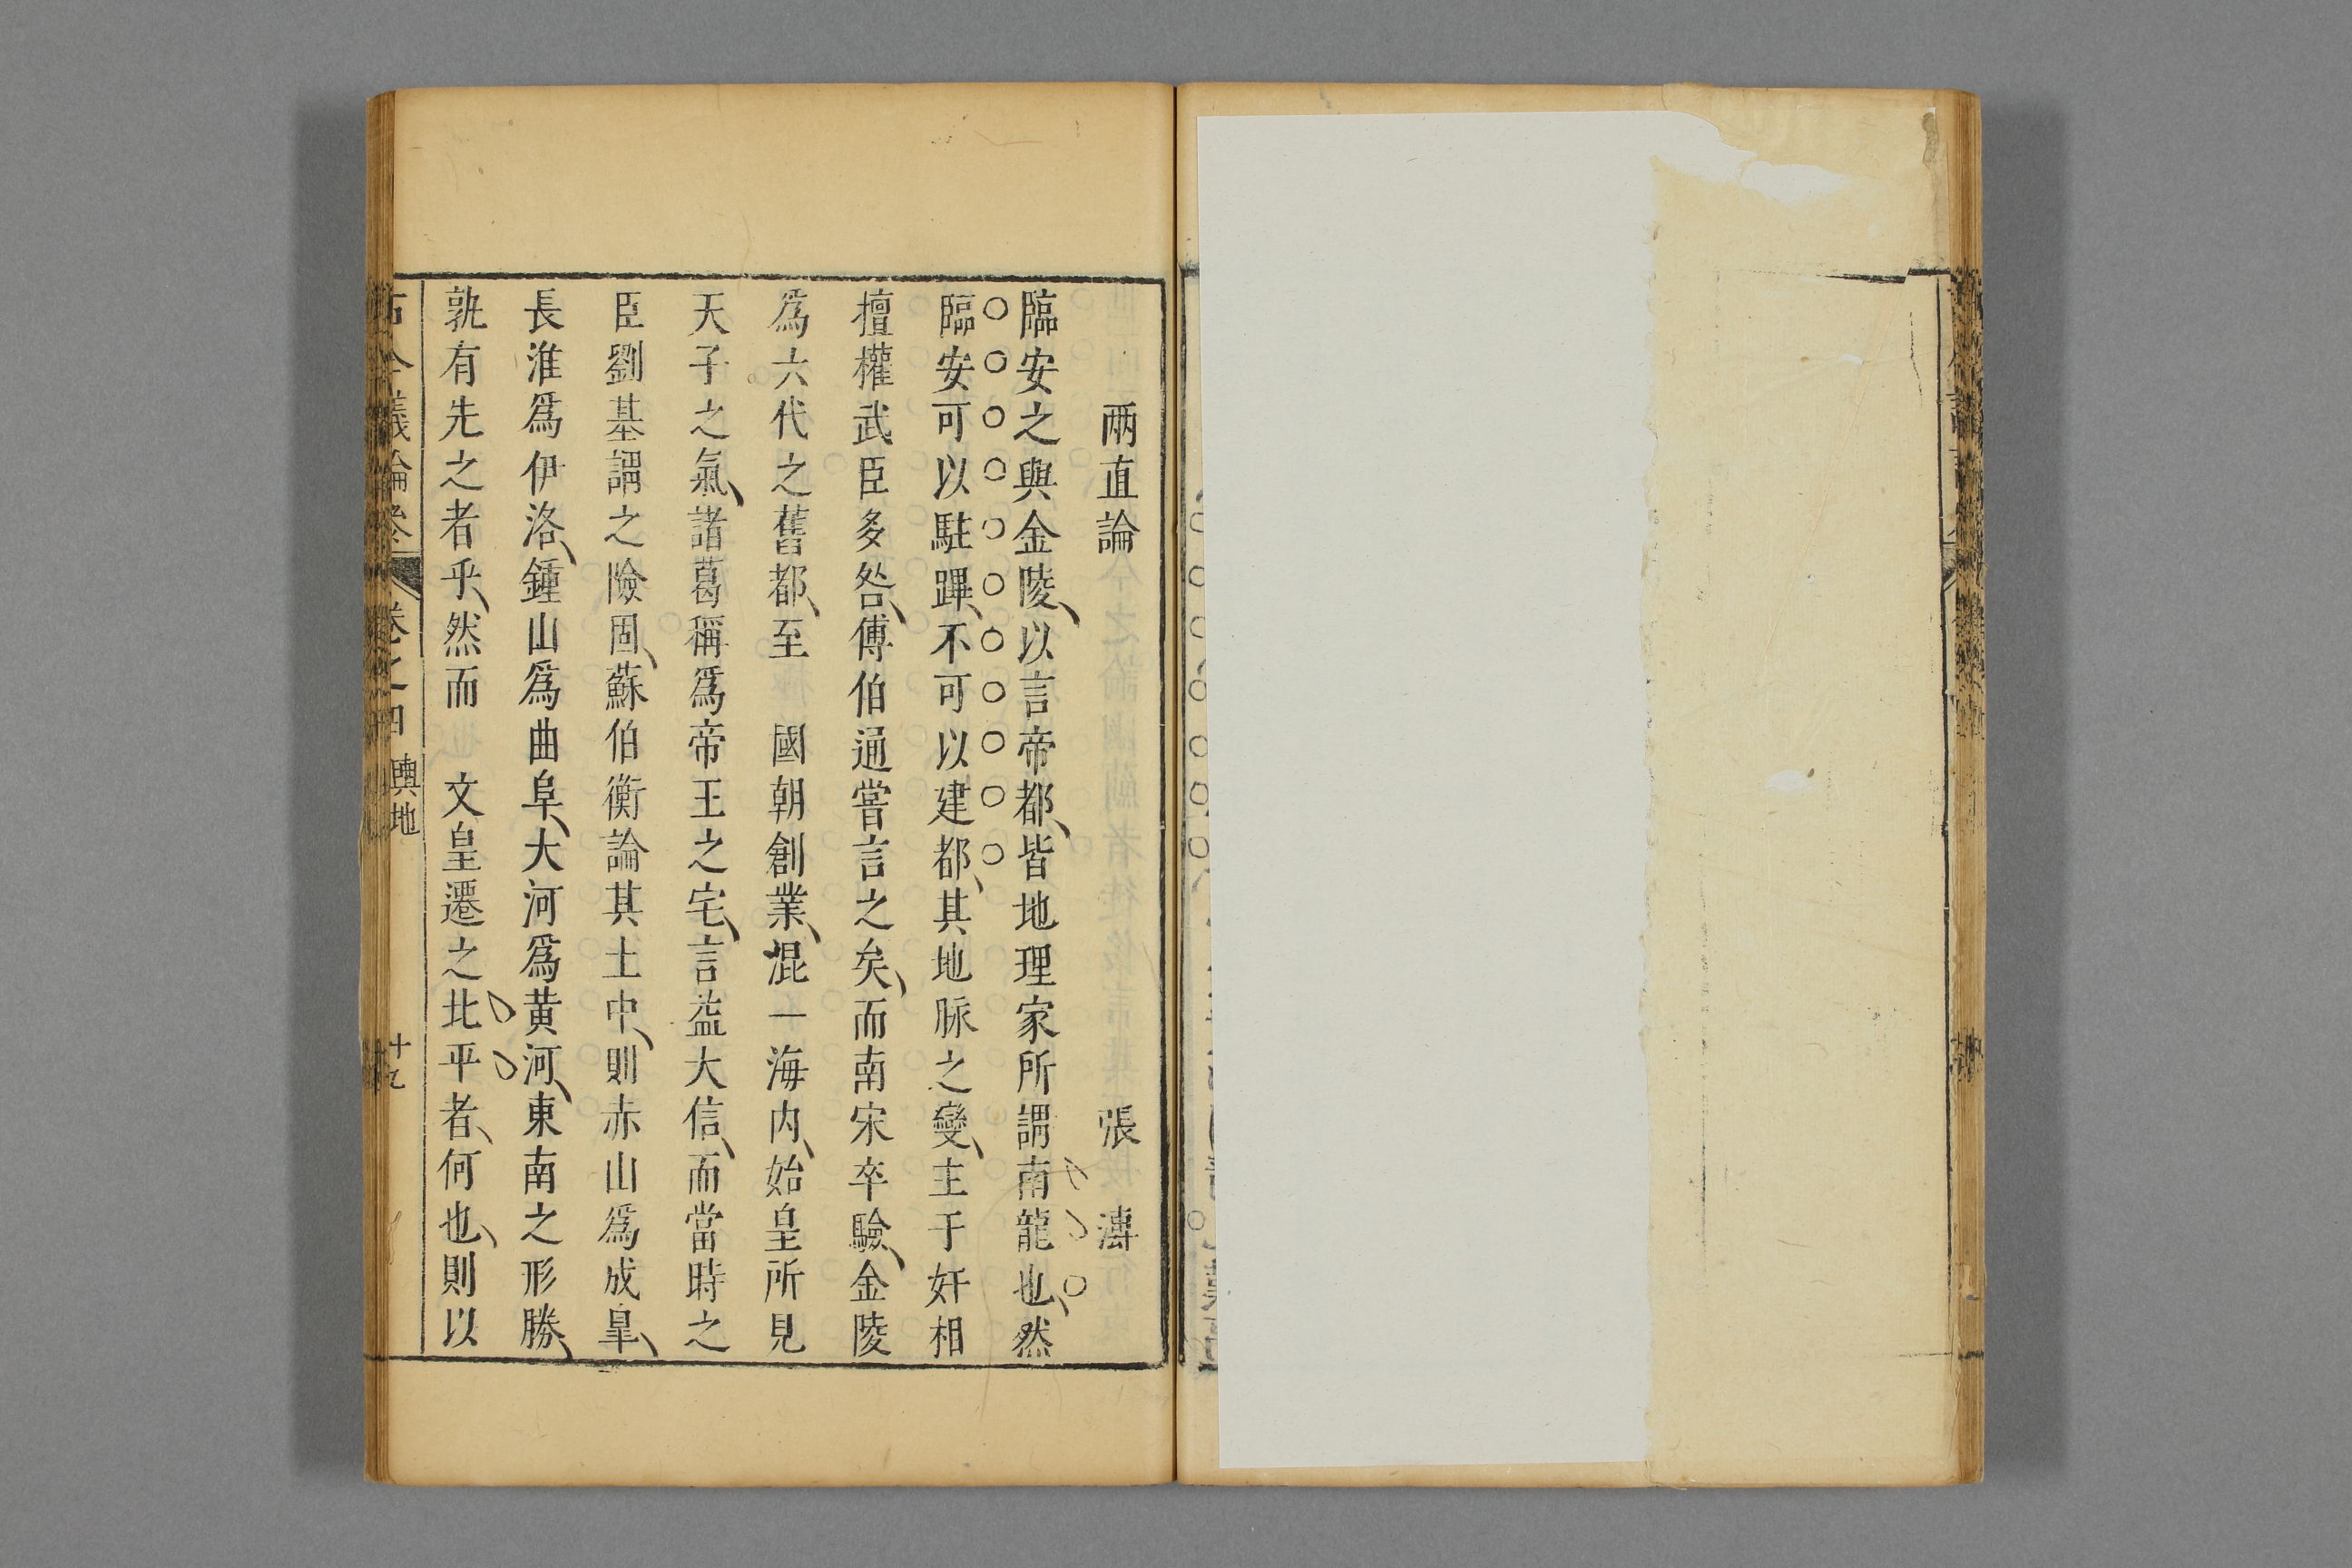 兩直論 張溥
臨安之與金陵以言帝都皆地理家所謂南龍也然
臨安可以駐蹕不可以建都其地脈之變主于奸相
擅權武臣多咎傅伯通嘗言之矣而南宋卒驗金陵
爲六代之舊都至 國朝創業混一海内始皇所見
天子之氣諸葛稱爲帝王之宅言益大信而當時之
臣劉基謂之險固蘇伯衡論其土中則赤山爲成臯
長淮爲伊洛鍾山爲曲阜大河爲黄河東南之形勝
孰有先之者乎然而 文皇遷之北平者何也則以
古今議論參 卷之四 輿地 十九